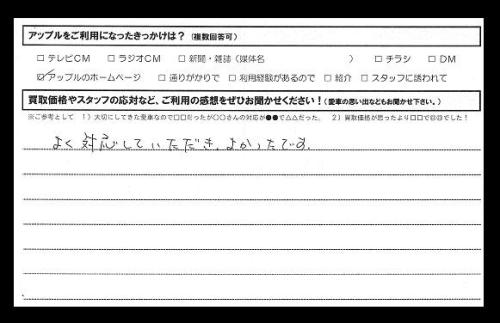 アップルをご利用になったきっかけは？（複数回答可）
□ テレビCM □ ラジオCM □ 新聞・雑誌（媒体名 ） □ チラシ □ DM
☑ アップルのホームページ □ 通りがかりで □ 利用経験があるので □ 紹介 □ スタッフに誘われて
買取価格やスタッフの応対など、ご利用の感想をぜひお聞かせください！（愛車の思い出などもお聞かせ下さい。）
※ご参考として 1）大切にしてきた愛車なので□□だったが○○さんの対応が●●で△△だった。 2）買取価格が思ったより□□で◎◎でした！
よく対応していただき、よかったです。